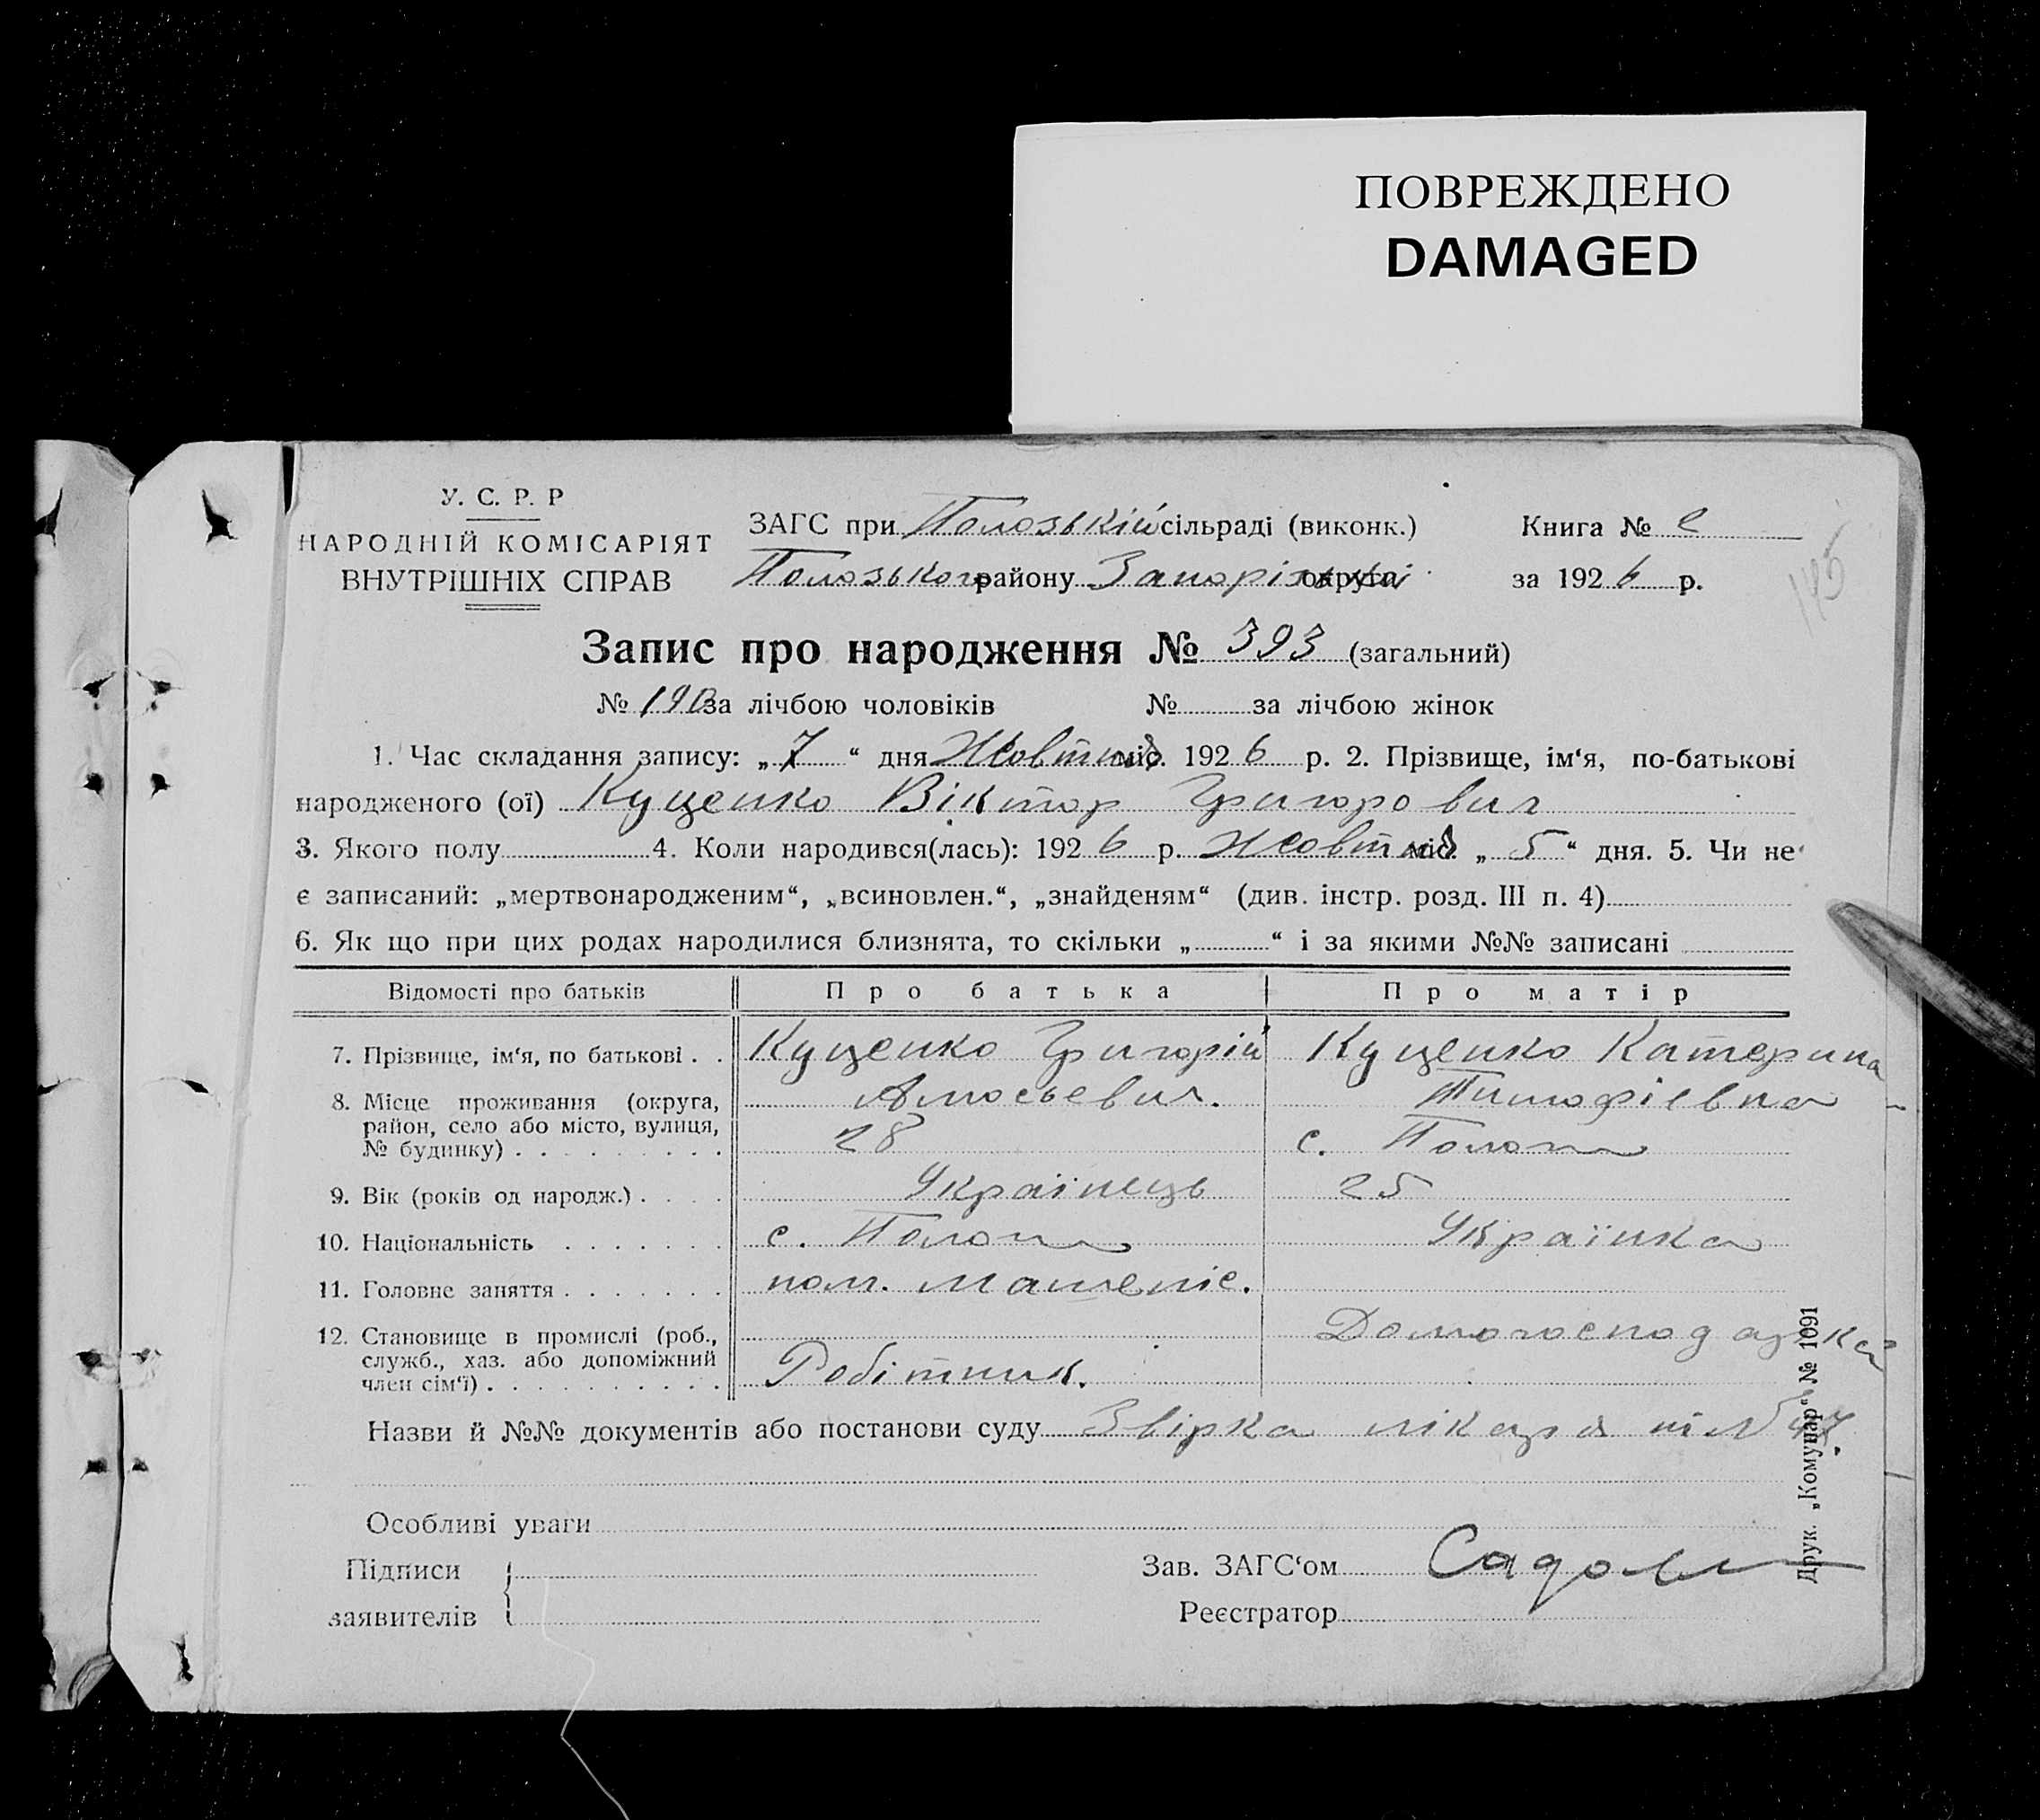 ПОВРЕЖДЕНО
DAMAGED
У. С. Р. Р
НАРОДНІЙ КОМІСАРІЯТ
ВНУТРІШНІХ СПРАВ
ЗАГС при Пологській сільраді (виконк.)
Пологського району Запорізької округи
Книга №
за 1926 р.
145
Запис про народження № 393 (загальний)
№ 190 за лічбою чоловіків № за лічбою жінок
1. Час складання запису: „ 7 “ дня Жовтня міс. 1926 р. 2. Прізвище, ім‘я, по-батькові
народженого (ої) Куценко Віктор Григорович
3. Якого полу 4. Коли народився(лась): 1926 р. Жовтня міс. „ 5 “ дня. 5. Чи не
є записаний: „мертвонародженим“, „всиновлен.“, „знайденям“ (див. інстр. розд. III п. 4)
6. Як що при цих родах народилися близнята, то скільки „ “ і за якими №№ записані
Відомості про батьків Про батька Про матір
7. Прізвище, ім‘я, по батькові . . Куценко Григорій Куценко Катерина
8. Місце проживання (округа, Амосьевич. Тимофіевна
район, село або місто, вулиця,
№ будинку) . . . . . . . . . 28 с. Пологи
9. Вік (років од народж.) . . . . Українець 25
10. Національність . . . . . . . с. Пологи Українка
11. Головне заняття . . . . . . . пом.
12. Становище в промислі (роб., Домогосподарка
служб., хаз. або допоміжний Робітник.
член сім‘ї) . . . . . . . . . .
Назви й №№ документів або постанови суду лікаря
Особливі уваги
Підписи
заявителів
Зав. ЗАГС‘ом
Реєстратор
Друк. „Комунар“ № 1091